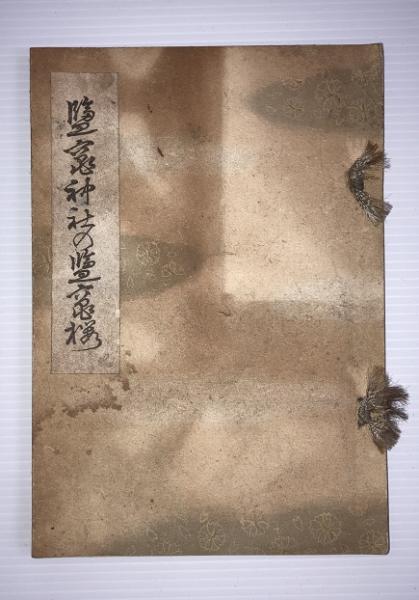 鹽竈神社の鹽竈櫻